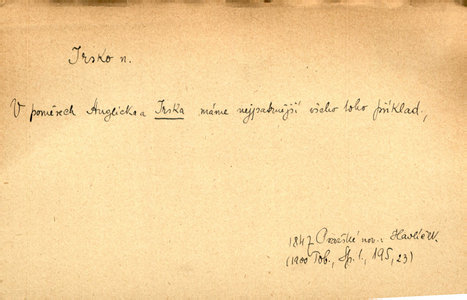 Irsko n.
V poměrech Anglicka a Irska máme nejpatrnější všeho toho příklad,
1847 Pražské nov.: Havlíček.
(1900 Tob., Sp. 1, 195, 23)